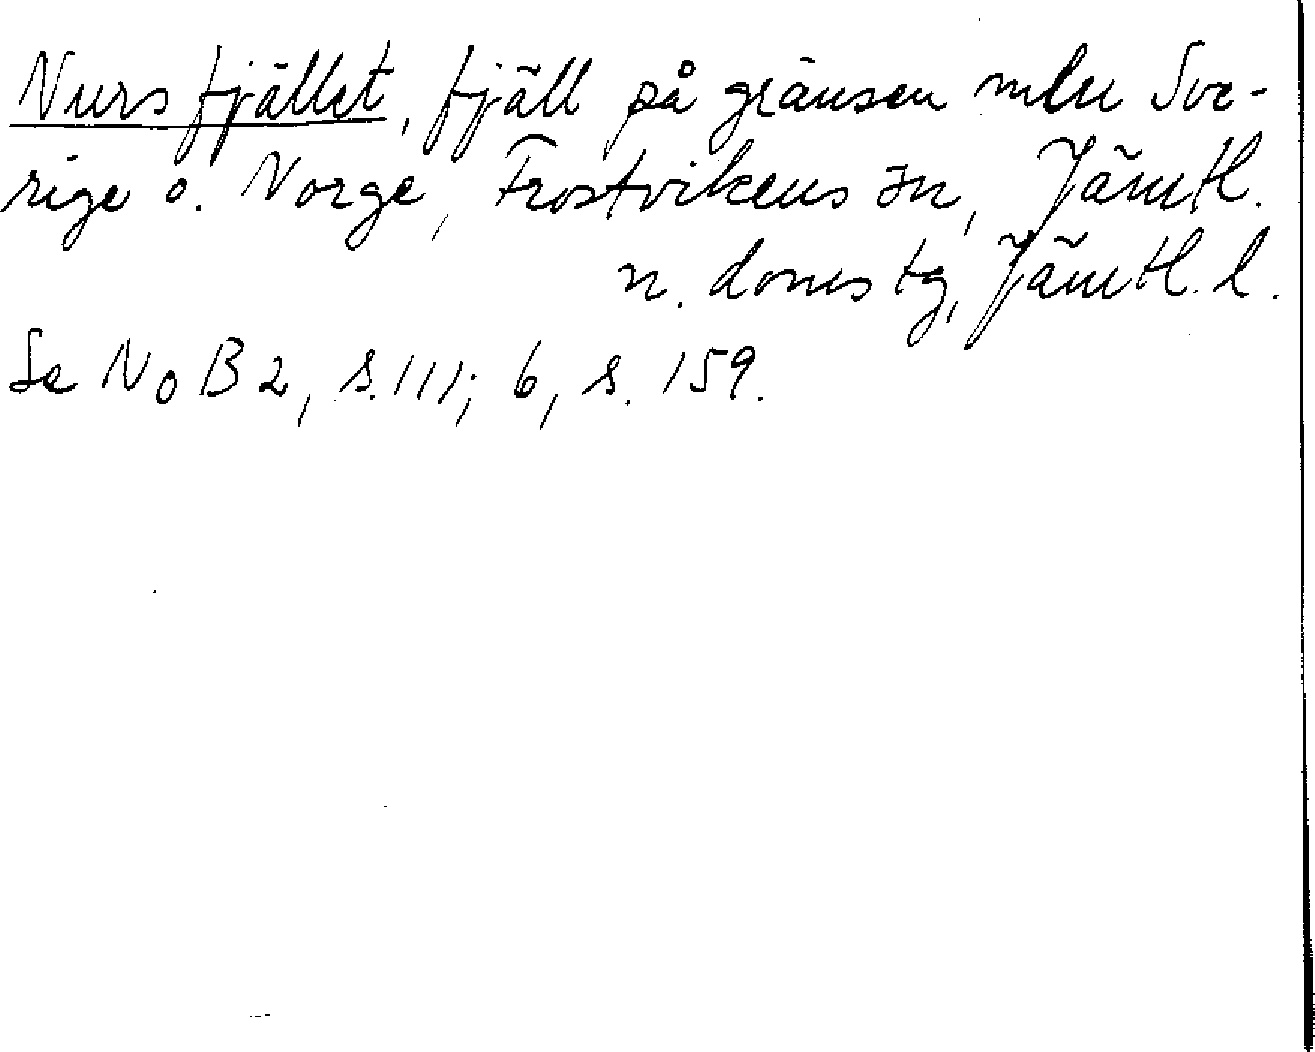 Nursfjället, fjäll på gränsen mlu Sve-
rige o. Norge, Frostvikens sn, Jämtl.
n. doms tg, Jämtl. l.
Se NoB 2, s. 111; 6, s. 159.